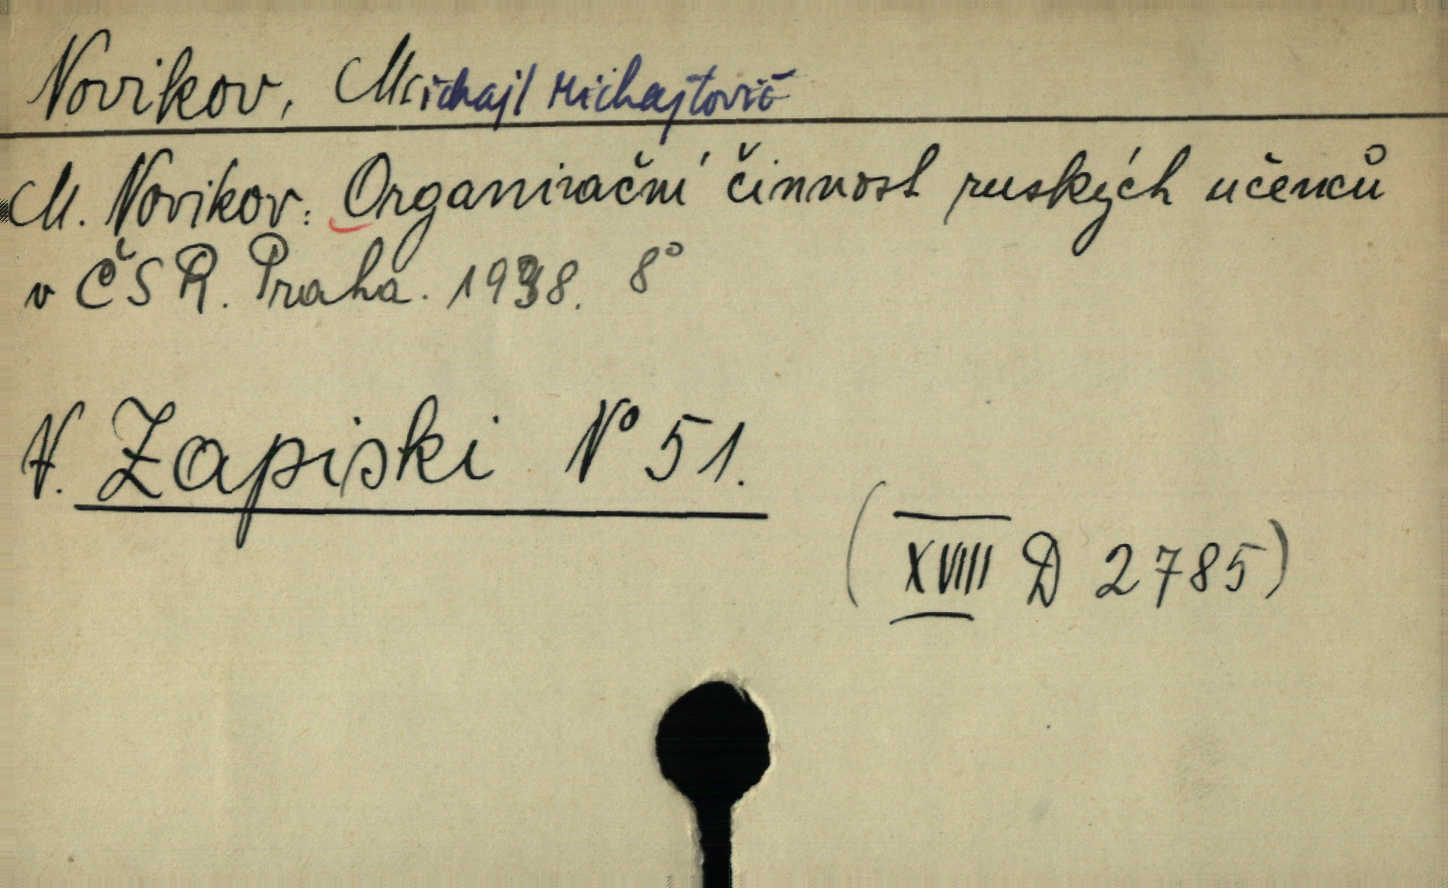 Novikov, Michajl Michajlovič
M. Novikov: Organizační činnost ruských učenců
v ČSR. Praha. 1938. 8°
V. Zapiski N° 51.
(XVIII D 2785)